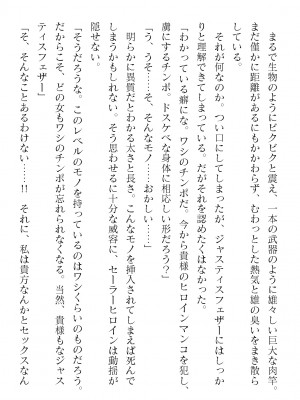 まるで生物のようにビクビクと震え、一本の武器のように雄々しい巨大な肉竿。
まだ僅かに距離があるにもかかわらず、むわっとした熱気と雄の臭いをまき散ら
している。
それが何なのか。つい口にしてしまったが、ジャスティスフェザーにははっき
りと理解できてしまっている。だがそれを認めたくはなかった。
「わかっている癖にな。ワシのチンポだ。今から貴様のヒロインマンコを犯し、
虜にするチンポ。ドスケベな身体に相応しい形だろう？」
「う、うそ……そ、そんなモノ……おかしい……」
明らかに異質だとわかる太さと長さ。こんなモノを挿入されてしまえば死んで
しまうかもしれない。そう思わせるに十分な威容に、セーラーヒロインは動揺が
隠せない。
「そうだろうな。このレベルのモノを持っているのはワシくらいのものだろう。
だからこそ、どの女もワシのチンポが忘れられなくなる。当然、貴様もなジャス
ティスフェザー」
「そ、そんなことあるわけない……!!　それに、私は貴方なんかとセックスなん